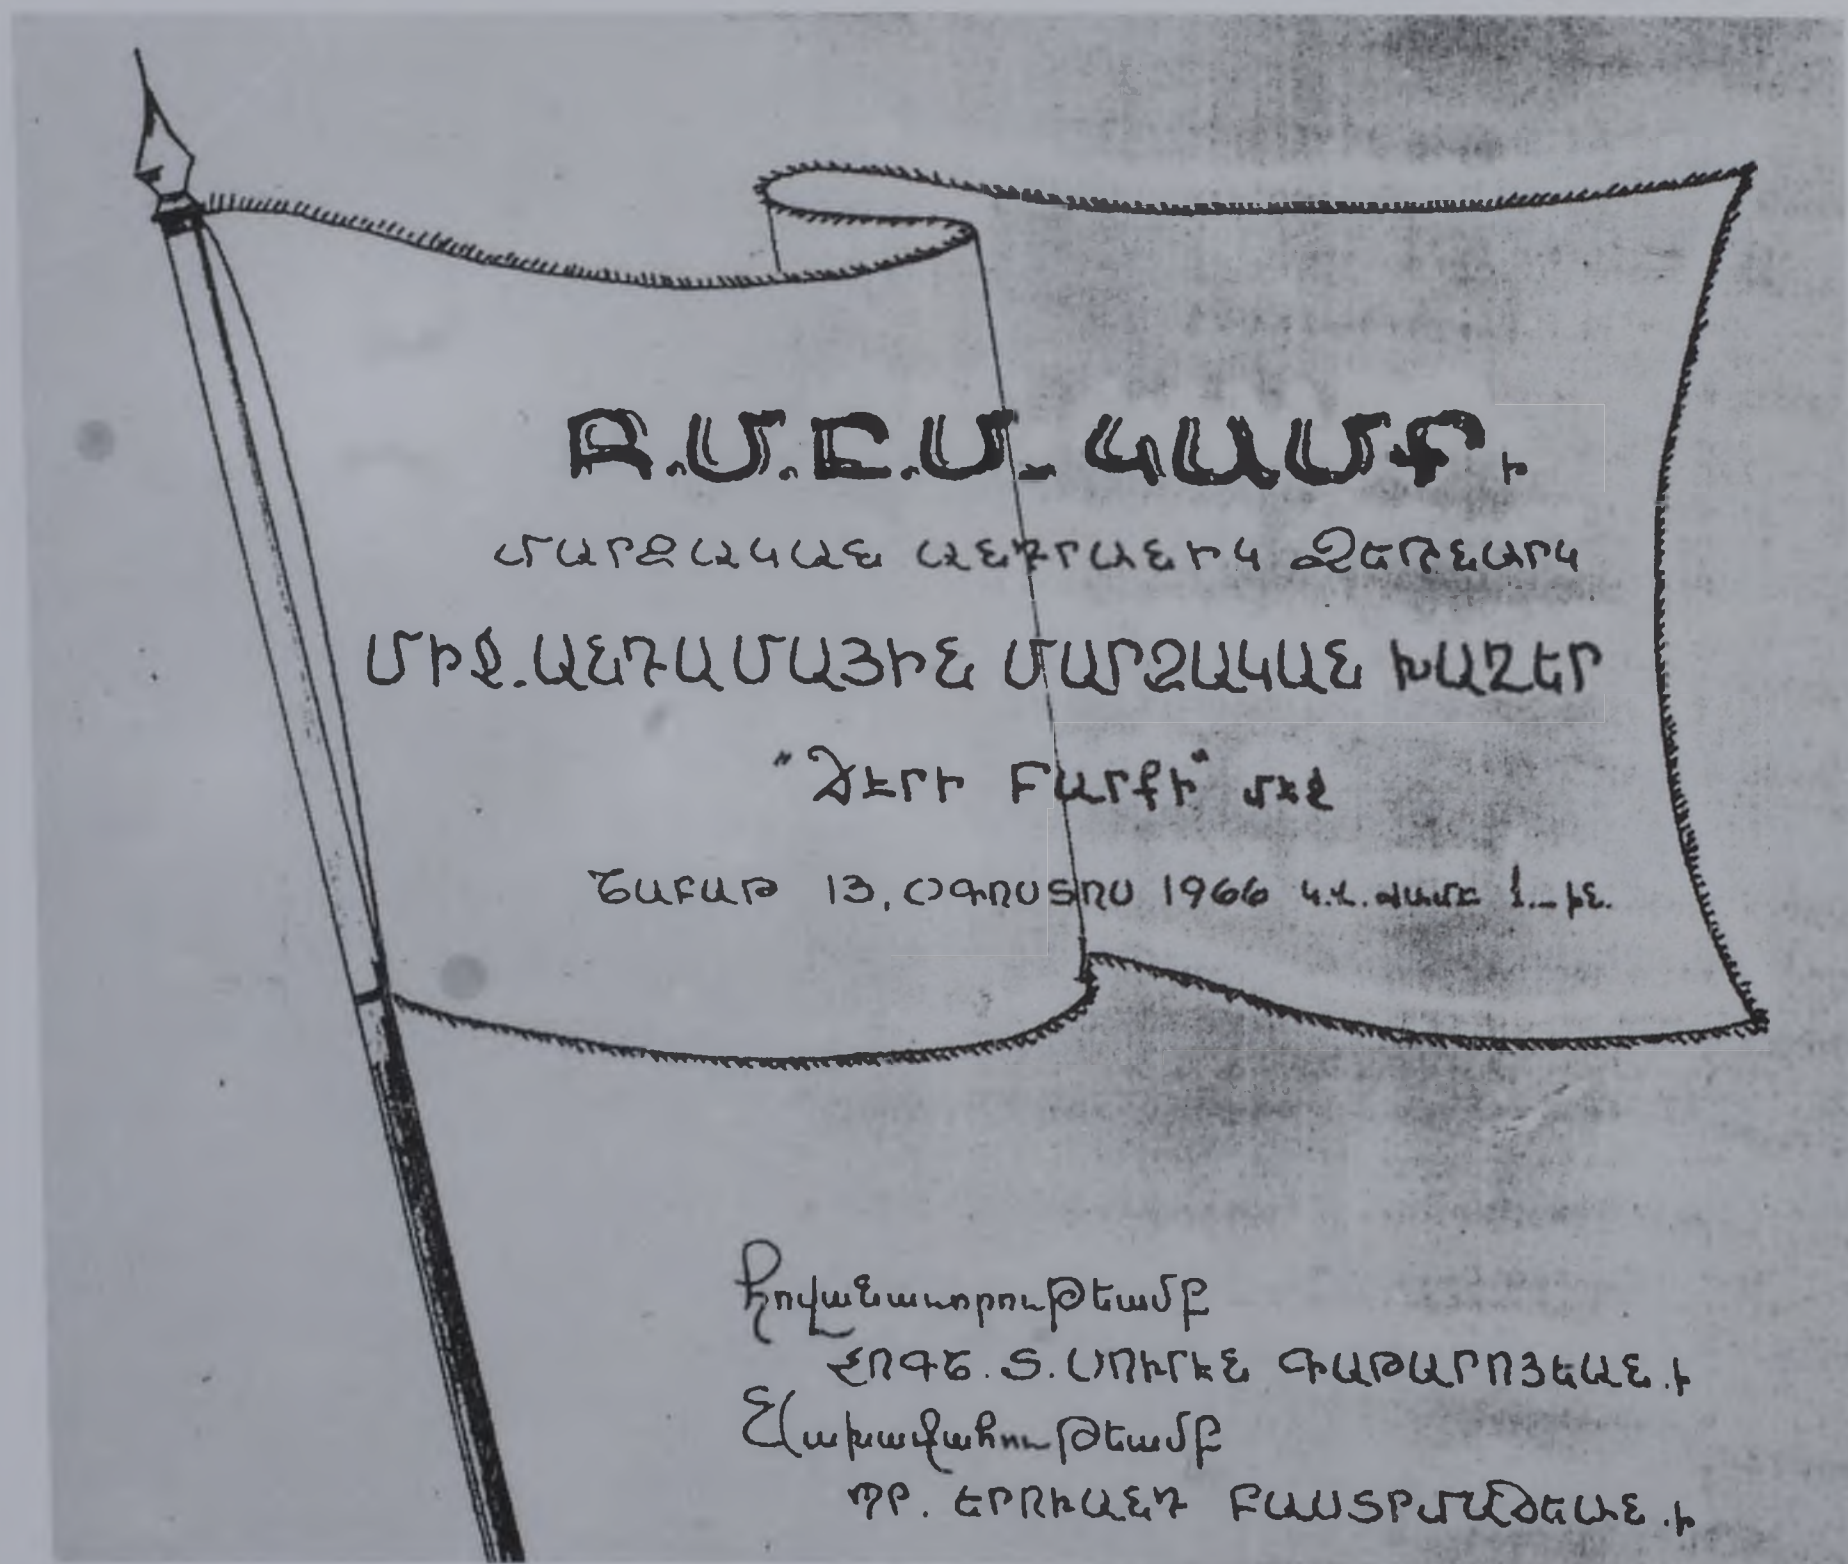 Հ.Մ.Ը.Մ.-ԿԱՄՔ.ի
ՄԱՐԶԱԿԱՆ ԱՆԴՐԱՆԻԿ ՁԵՌՆԱՐԿ
ՄԻՋ.ԱՆԴԱՄԱՅԻՆ ՄԱՐԶԱԿԱՆ ԽԱՂԵՐ
"ՃԷՐԻ ԲԱՐՔԻ" մէջ
ՇԱԲԱԹ 13, ՕԳՈՍՏՈՍ 1966 ժամը 1_ին.
Հովանաւորութեամբ
ՀՈԳՇ. Տ. ՍՈՒՐԷՆ ԳԱԹԱՐՈՅԵԱՆ.ի
Նախագահութեամբ
ՊՐ. ԵՐՈՒԱՆԴ ԲԱՍՏՐՄԱՃԵԱՆ.ի